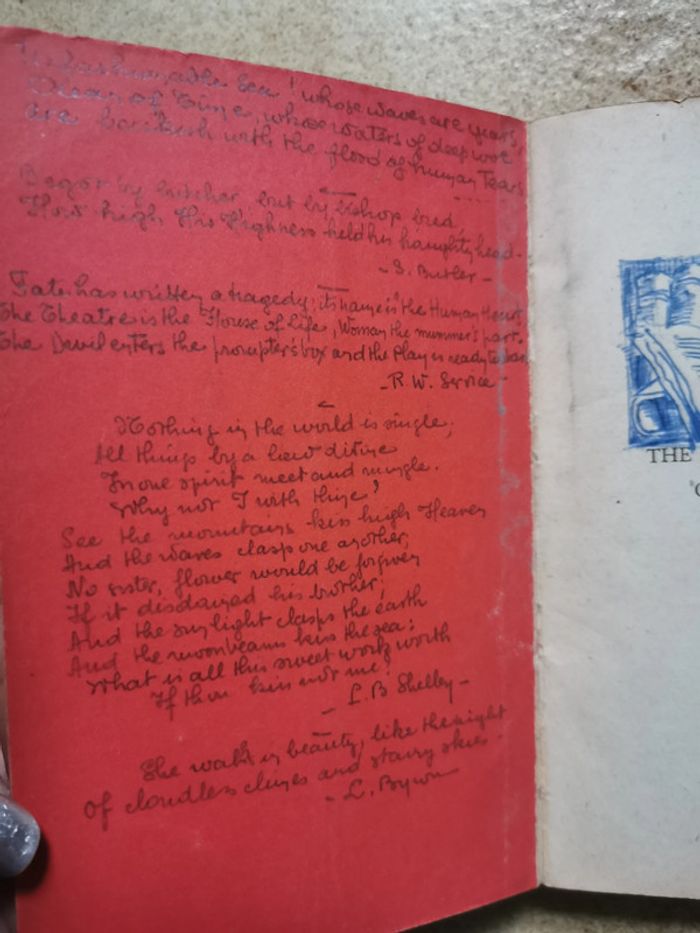 Unfathomable Sea! whose waves are years,
Ocean of Time, whose waters of deep woe
are brackish with the flood of human Tears
Begot by butcher, but by bishop bred,
How high His Highness held his haughty head.
- S. Butler -
Fate has written a tragedy; its name is "the Human Heart.
The Theatre is the House of Life, Woman the mummer's part.
The Devil enters the prompter's box and the Play is ready to
- R. W. Service -
Nothing in the world is single;
All things by a law divine
In one spirit meet and mingle.
Why not I with thine?
See the mountains kiss high Heaven
And the waves clasp one another;
No sister, flower would be forgiven
If it disdained his brother;
And the sunlight clasps the earth
And the moonbeams kiss the sea:
What is all this sweet work worth
If thou kiss not me?
- L. B Shelley -
She walks in beauty, like the night
Of cloudless climes and starry skies -
- L. Byron
THE